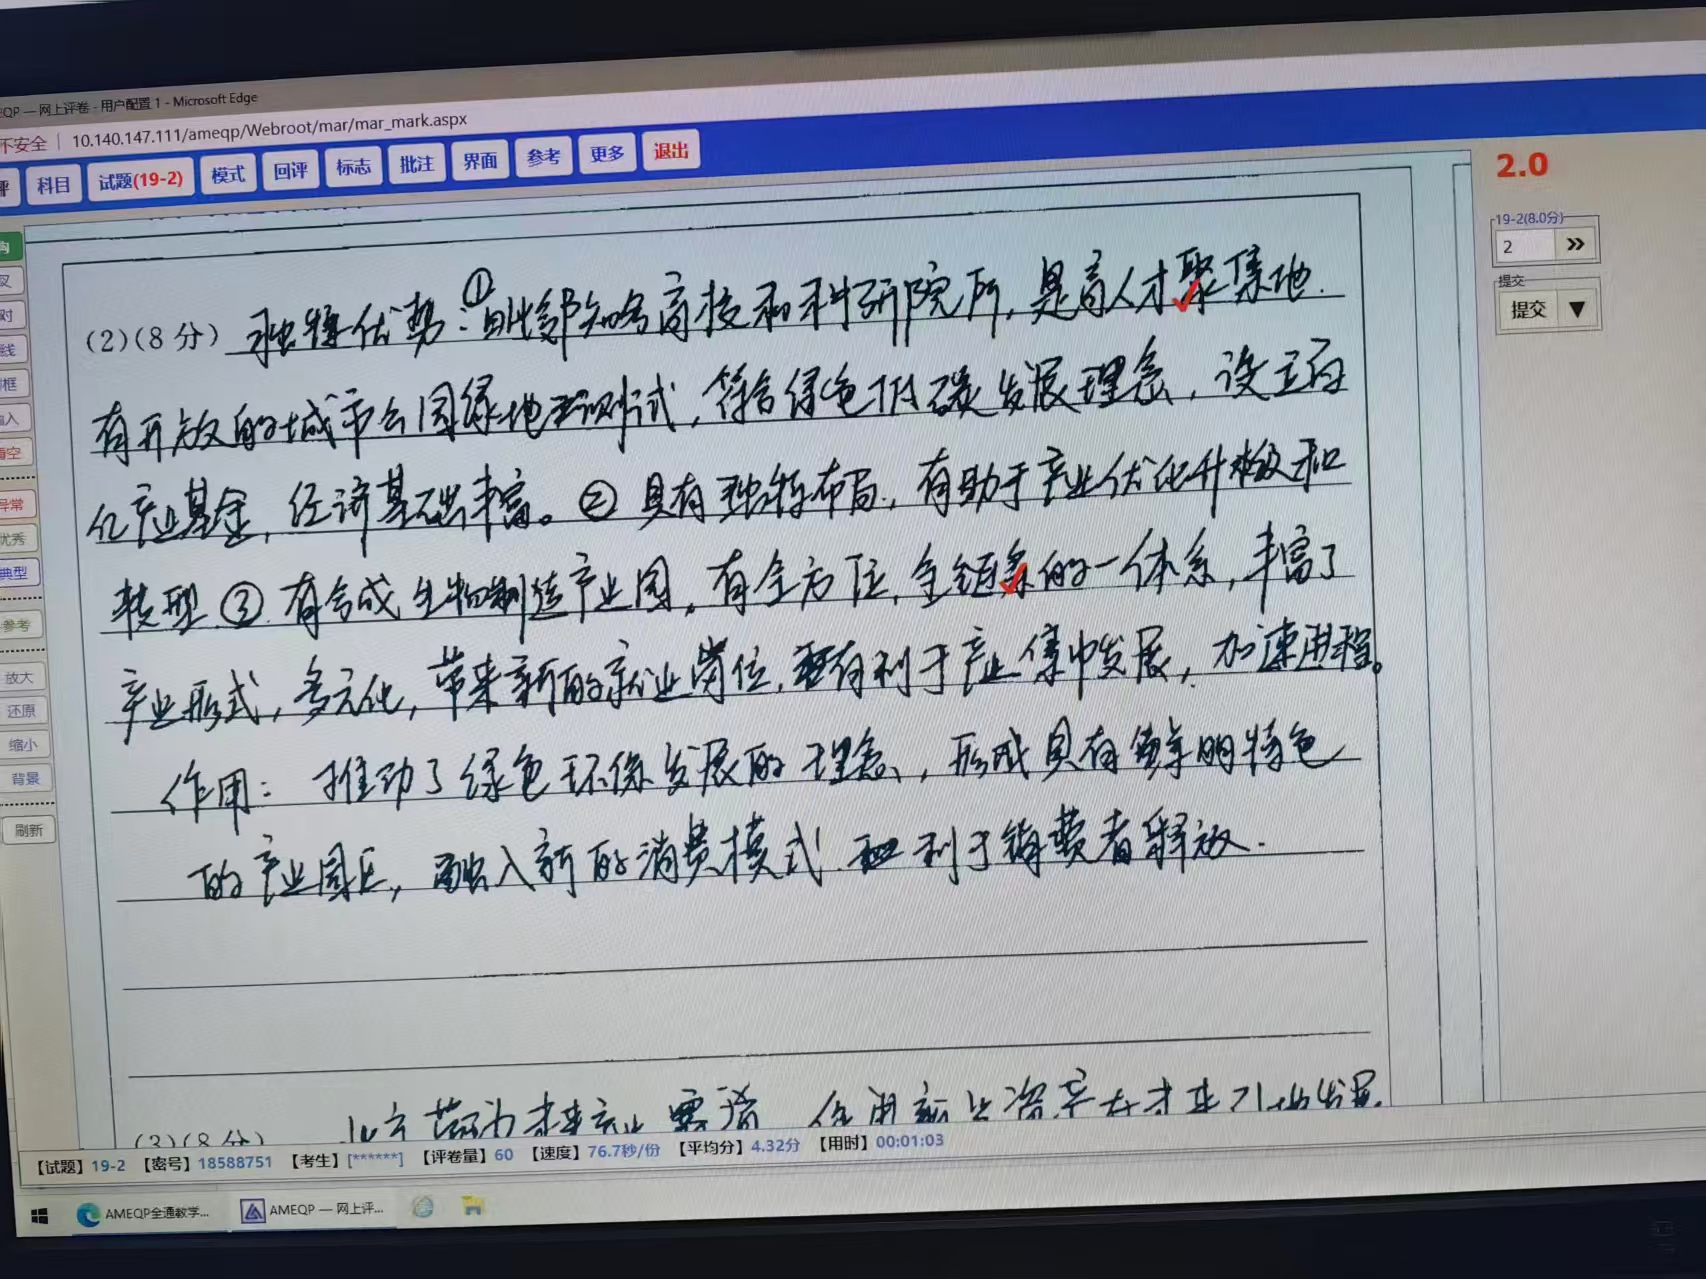 QP — 网上评卷 - 用户配置 1 - Microsoft Edge
不安全 10.140.147.111/ameqp/Webroot/mar/mar_mark.aspx
评 科目 试题(19-2) 模式 回评 标志 批注 界面 参考 更多 退出
2.0
19-2(8.0分)
2 »
提交
提交 ▼
勾
叉
对
线
框
输入
清空
异常
优秀
典型
参考
放大
还原
缩小
背景
刷新
(2)(8分) 独特优势:①毗邻知名高校和科研院所,是高人才聚集地.
有开放的城市公园绿地测试,符合绿色低碳发展理念,设立百
亿产业基金,经济基础丰富。②具有独特布局,有助于产业优化升级和
转型 ③有合成生物制造产业园,有全方位,全链条的一体系,丰富了
产业形式,多元化,带来新的就业岗位,有利于产业集中发展,加速进程。
作用:推动了绿色环保发展的理念,形成具有鲜明特色
的产业园区,融入新的消费模式.利于消费者释放.
(3)(8分)
【试题】19-2 【密号】18588751 【考生】[******] 【评卷量】60 【速度】76.7秒/份 【平均分】4.32分 【用时】00:01:03
AMEQP全通教学... AMEQP — 网上评...